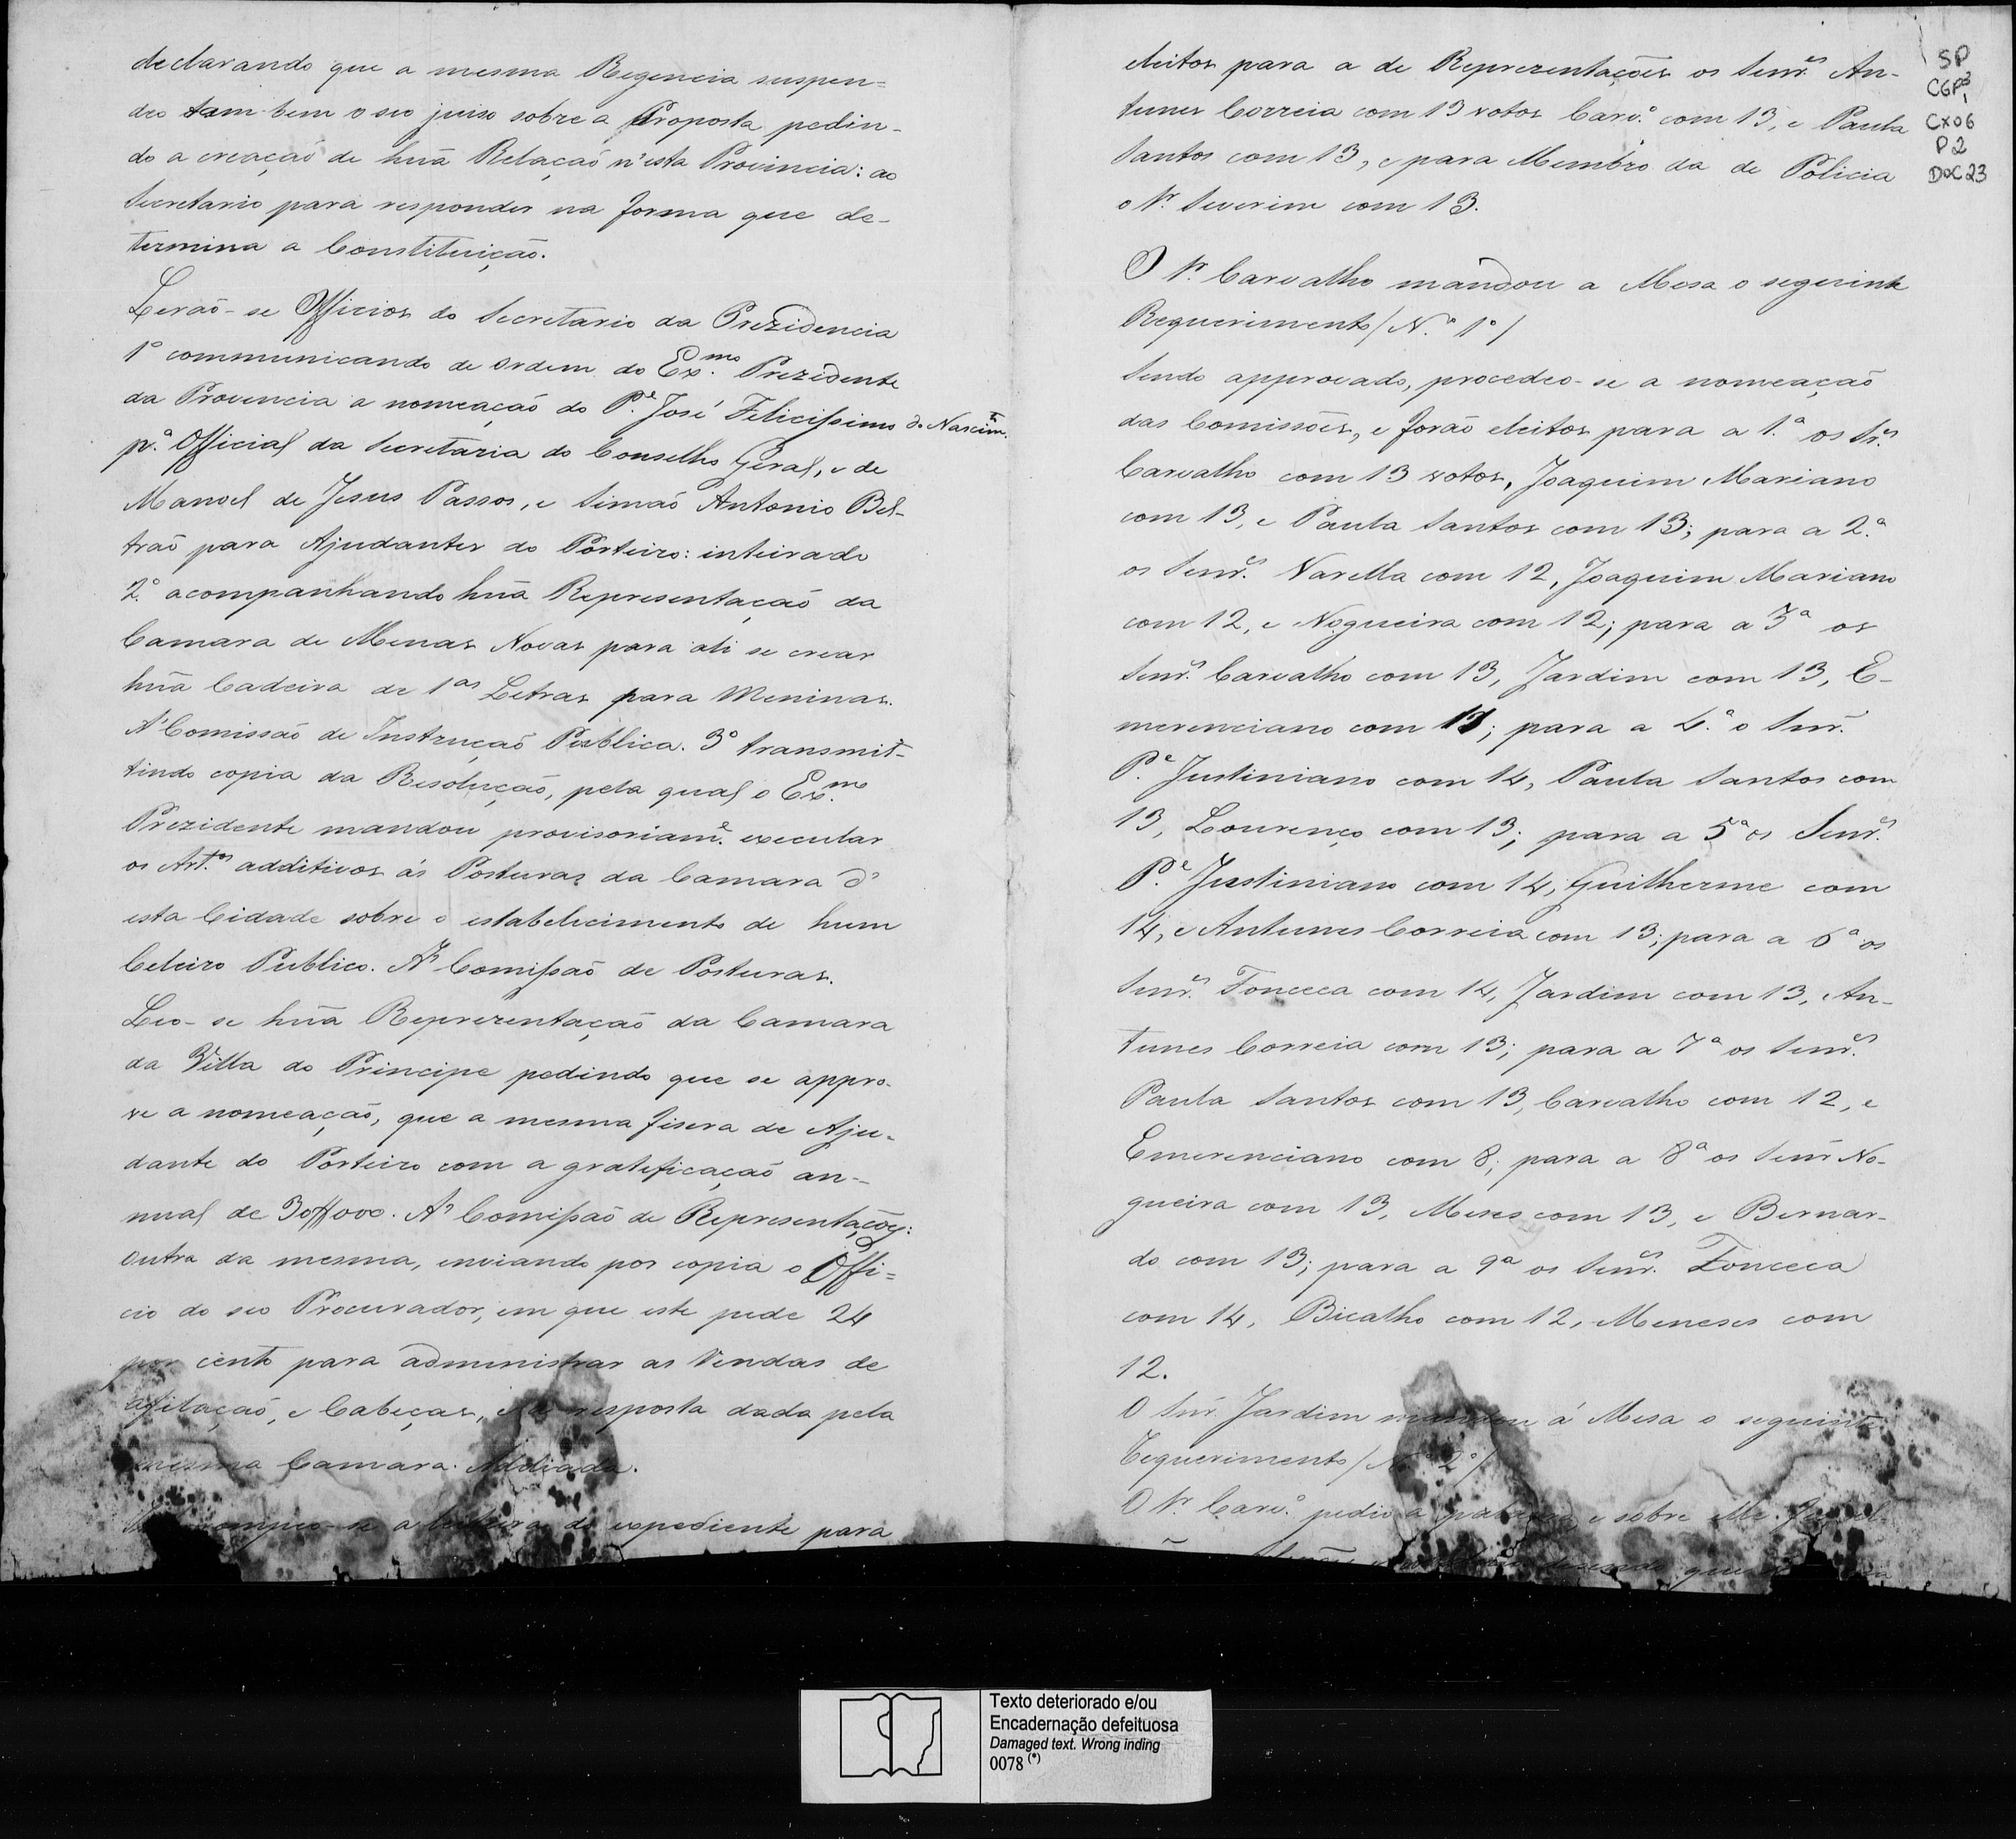 declarando que a mesma Regencia suspen=
deo tam bem o seo juiso sobre a Proposta pedin-
do a creação de huã Relação n'esta Provincia: ao
Secretario para responder na forma que de-
termina a Constituição.
Lerão-se Officios do Secretario da Prezidencia
1º communicando de ordem do Ex.mo Prezidente
da Provincia a nomeação do P.e José Felicissimo do Nascim.to
p.a Official da Secretaria do Conselho Geral, e de
Manoel de Jesus Passos, e Simão Antonio Bel-
trão para Ajudantes do Porteiro: inteirado
2.º acompanhando huã Representação da
Camara de Minas Novas para ali se crear
huã Cadeira de 1as Letras para Meninas.
A' Comissão de Instrucção Publica. 3º transmit-
tindo copia da Resolução, pela qual o Ex.mo
Prezidente mandou provisoriam.e executar
os Art.os additivos ás Posturas da Camara d'
esta Cidade sobre o estabelecimento de hum
Celeiro Publico. A' Comissão de Posturas.
Leo-se huã Reprezentação da Camara
da Villa do Principe pedindo que se appro-
ve a nomeação, que a mesma fisera de Aju-
dante do Porteiro com a gratificação an-
nual de 30$000. A' Comissão de Representações:
outra da mesma, enviando por copia o Offi=
cio do seo Procurador, em que este pede 24
por cento para administrar as Vendas de
afilação, e Cabeças, resposta dada pela
mesma Camara. Addiada.
-se a leitura do expediente para
eleitos para a de Reprezentações os Senr.es An-
tunes Correia com 13 votos Carv.º com 13, e Paula
Santos com 13, e para Membro da de Policia
o Sr. Severim com 13.
O Sr. Carvalho mandou a Mesa o seguinte
Requerimento/N.º 1º/
Sendo approvado, procedeo-se a nomeação
das Comissões, e forão eleitos para a 1.ª os Sr.es
Carvalho com 13 votos, Joaquim Mariano
com 13, e Paula Santos com 13; para a 2.ª
os Senr.es Varella com 12, Joaquim Mariano
com 12, e Nogueira com 12; para a 3ª os
Senr.es Carvalho com 13, Jardim com 13, E-
merenciano com 13; para a 4.ª o Snr.
P.e Justiniano com 14, Paula Santos com
13, Lourenço com 13; para a 5ª os Senr.es
P.e Justiniano com 14, Guilherme com
14, e Antunes Correia com 13; para a 6ª os
Senr.es Fonceca com 14, Jardim com 13, An-
tunes Correia com 13; para a 7ª os Senr.es
Paula Santos com 13, Carvalho com 12, e
Emerenciano com 8; para a 8ª os Senr No-
gueira com 13, Meses com 13, e Bernar-
do com 13; para a 9ª os Senr.es Fonceca
com 14, Bicalho com 12, Meneses com
12.
O Snr. Jardim mandou á Mesa o seguinte
Requerimento/N.º 2º/
O Sr. Carv.º pedio a palavra, e sobre
dizendo que
SP
CGP³1
CX06
P2
DOC23
Texto deteriorado e/ou
Encadernação defeituosa
Damaged text. Wrong inding
0078 (*)